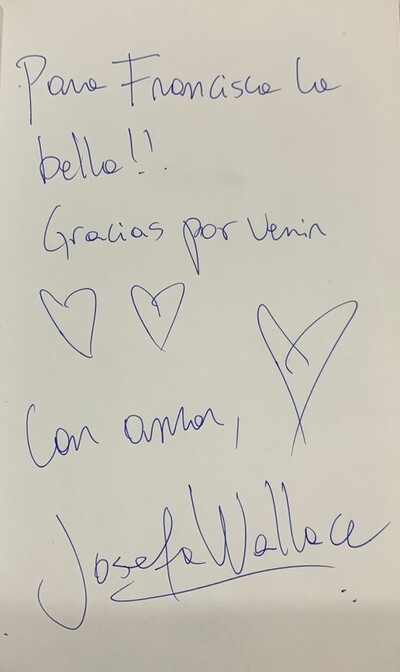 Para Francisca la
bella!!
Gracias por venir
Con amor,
Josefa Wallace